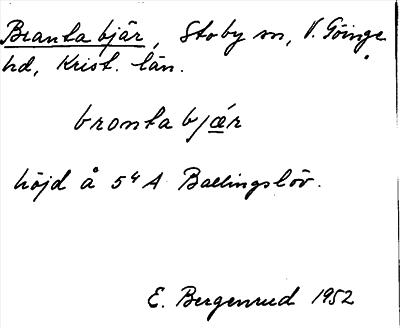 Branta bjär, Stoby sn, V. Göinge
hd, Krist. län.
bronta bjær
höjd å 5⁴ A Ballingslöv.
E. Bergenrud 1952